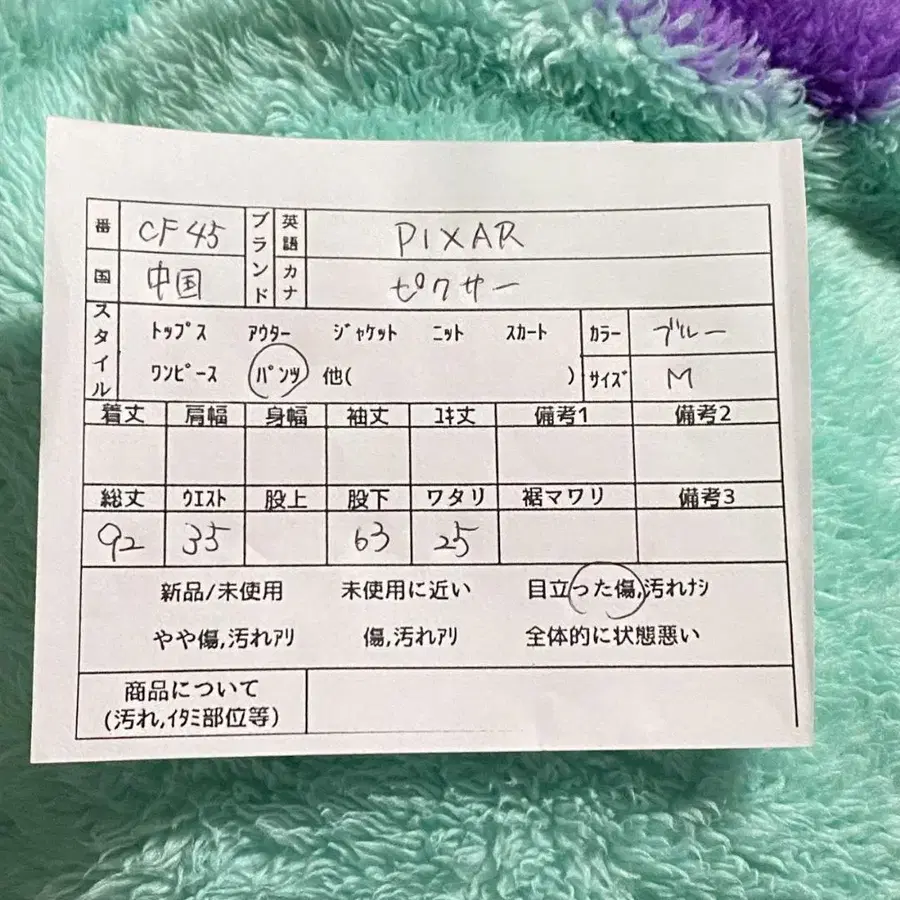 番 CF45 ブランド 英語 PIXAR
国 中国 カナ ピクサー
スタイル トップス アウター ジャケット ニット スカート カラー ブルー
ワンピース パンツ 他( ) サイズ M
着丈 肩幅 身幅 袖丈 ユキ丈 備考1 備考2
総丈 ウエスト 股上 股下 ワタリ 裾マワリ 備考3
92 35 63 25
新品/未使用 未使用に近い 目立った傷,汚れナシ
やや傷,汚れアリ 傷,汚れアリ 全体的に状態悪い
商品について
(汚れ,イタミ部位等)